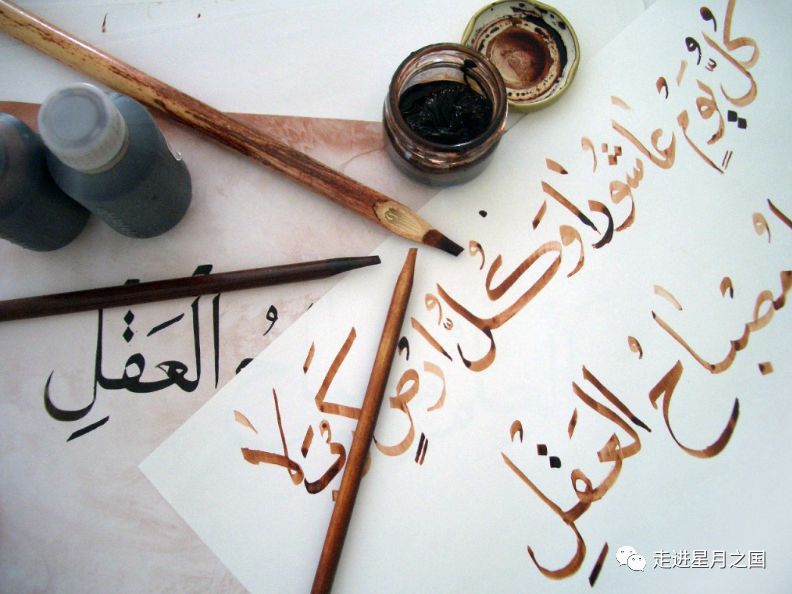 كُلُّ يَوْمٍ عَاشُورَا وَكُلُّ اَرْضٍ كَرْبَلَا
مِصْبَاحُ العَقْلِ
العَقْلِ
走进星月之国